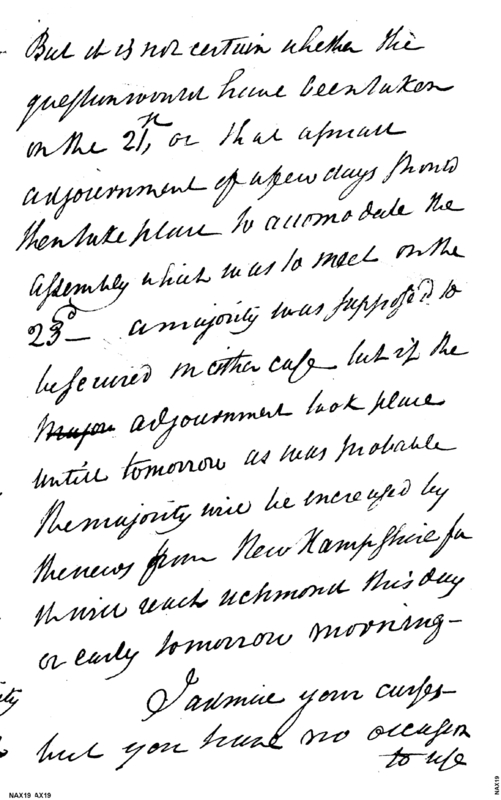 But it is not certain whether the
question would have been taken
on the 21st, or that a small
adjournment of a few days should
then take place to accomodate the
assembly which was to meet on the
23d— a majority was supposed to
be secured in either case but if the
Major adjournment took place
untill tomorrow as was probable
the majority will be increased by
the news from New Hampshire for
it will reach richmond this day
or early tomorrow morning—
I admire your curses—
but you have no occasion
to use
NAX19 AX19
NAX19